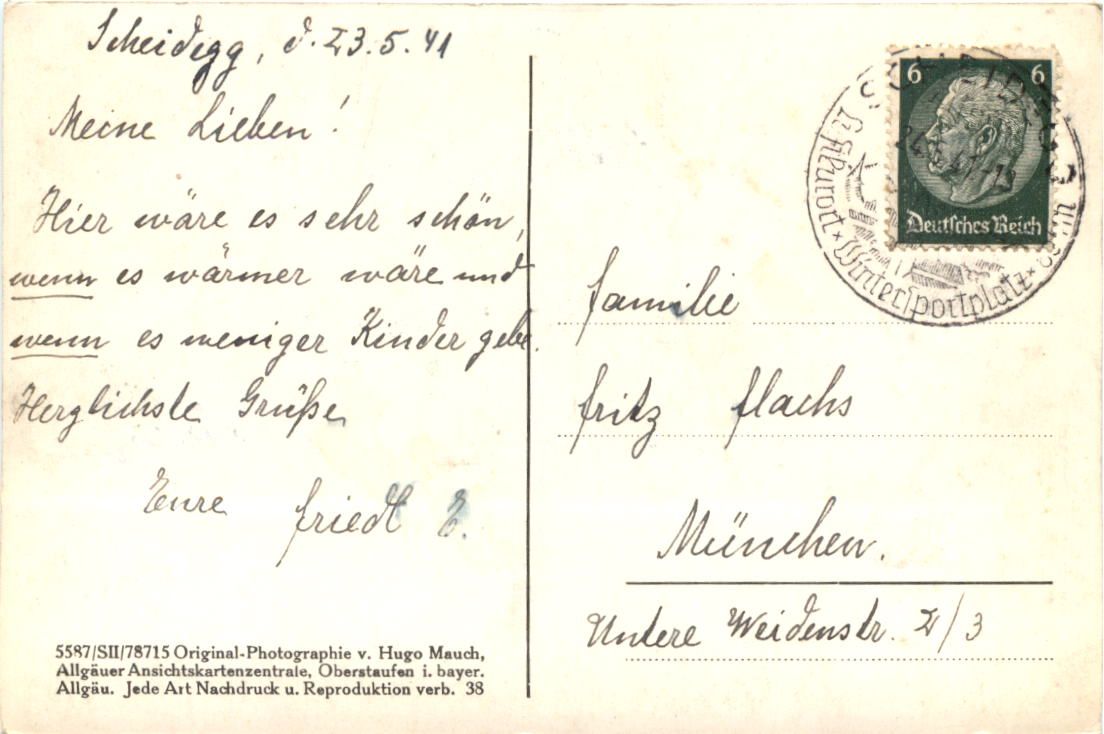 Scheidegg, d. 23.5.41
Meine Lieben!
Hier wäre es sehr schön,
wenn es wärmer wäre und
wenn es weniger Kinder gebe.
Herzlichste Grüße
Eure Friedl E.
5587/SII/78715 Original-Photographie v. Hugo Mauch,
Allgäuer Ansichtskartenzentrale, Oberstaufen i. bayer.
Allgäu. Jede Art Nachdruck u. Reproduktion verb. 38
6 6
Deutsches Reich
SCHEIDEGG
Luftkurort * Wintersportplatz *
Familie
Fritz Flachs
München.
Untere Weidenstr. 2/3